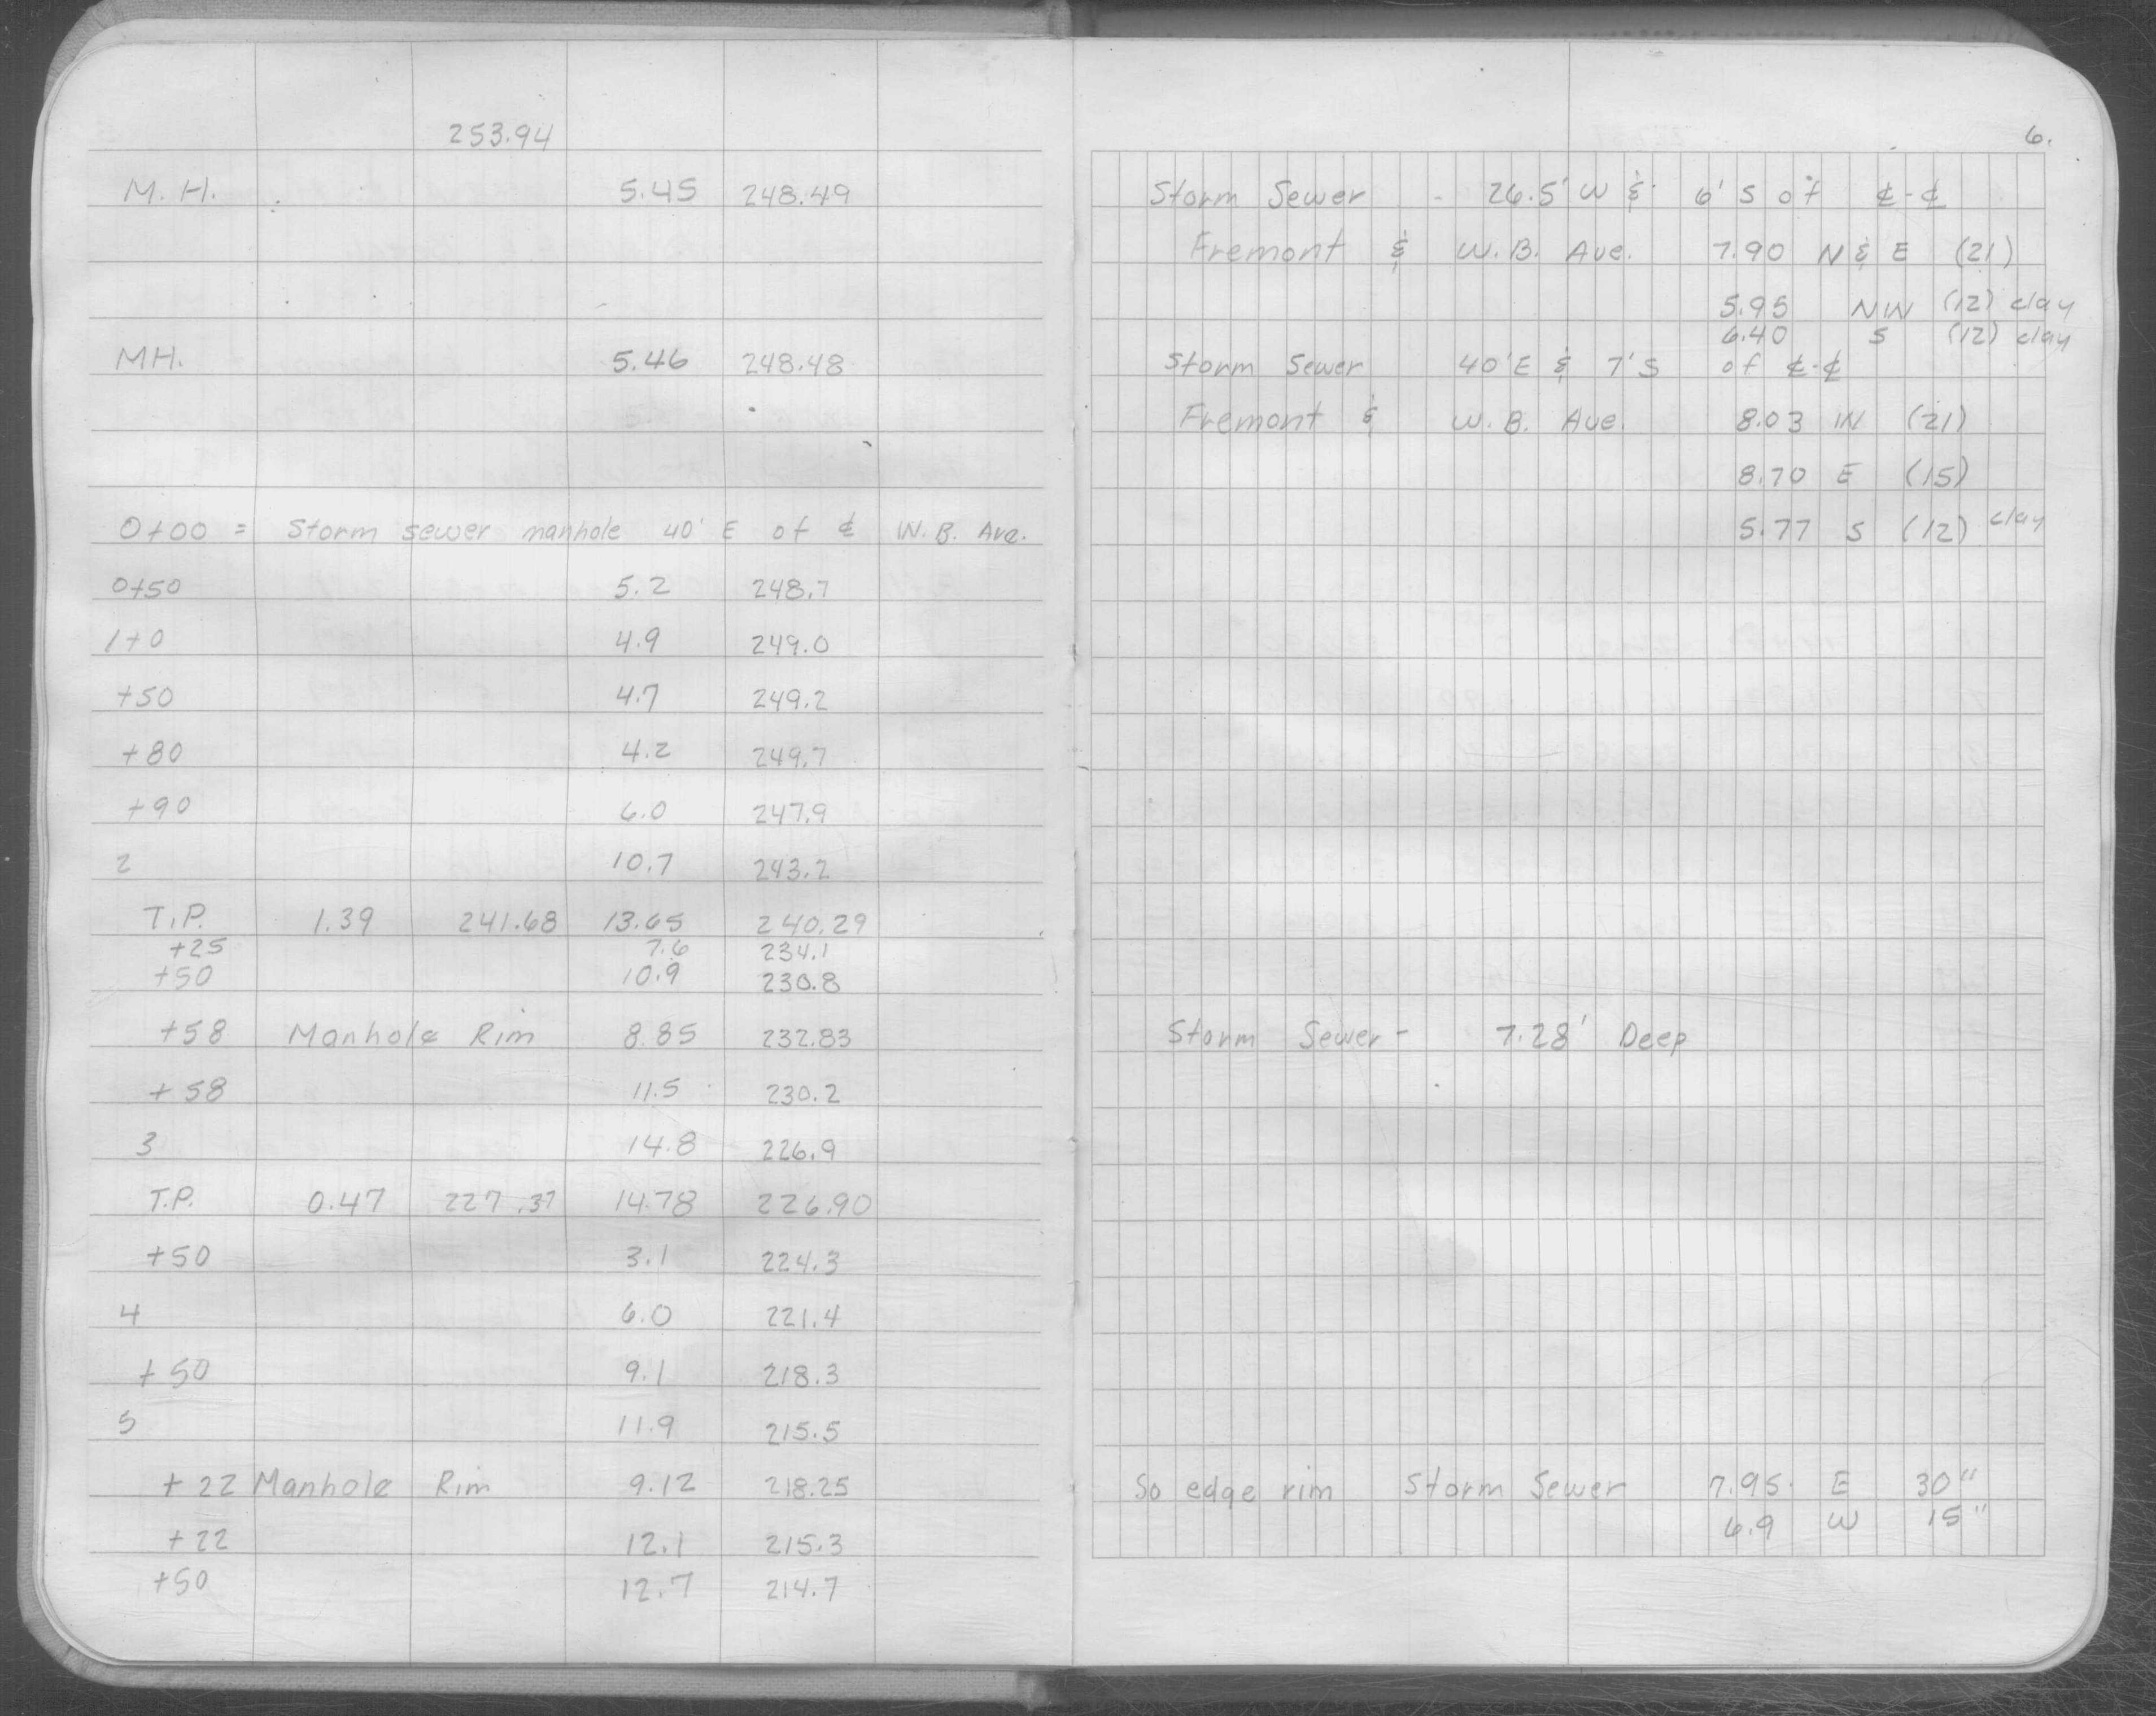 253.94
M.H. 5.45 248.49
MH. 5.46 248.48
0+00 = Storm sewer manhole 40' E of ℄ W.B. Ave.
0+50 5.2 248.7
1+0 4.9 249.0
+50 4.7 249.2
+80 4.2 249.7
+90 6.0 247.9
2 10.7 243.2
T.P. 1.39 241.68 13.65 240.29
+25 7.6 234.1
+50 10.9 230.8
+58 Manhole Rim 8.85 232.83
+58 11.5 230.2
3 14.8 226.9
T.P. 0.47 227.37 14.78 226.90
+50 3.1 224.3
4 6.0 221.4
+50 9.1 218.3
5 11.9 215.5
+22 Manhole Rim 9.12 218.25
+22 12.1 215.3
+50 12.7 214.7
6.
Storm Sewer - 26.5' W & 6' S of ℄-℄
Fremont & W.B. Ave. 7.90 N & E (21)
5.95 NW (12) clay
6.40 S (12) clay
Storm Sewer 40' E & 7' S of ℄-℄
Fremont & W.B. Ave. 8.03 W (21)
8.70 E (15)
5.77 S (12) clay
Storm Sewer - 7.28' Deep
So edge rim Storm Sewer 7.95 E 30"
6.9 W 15"